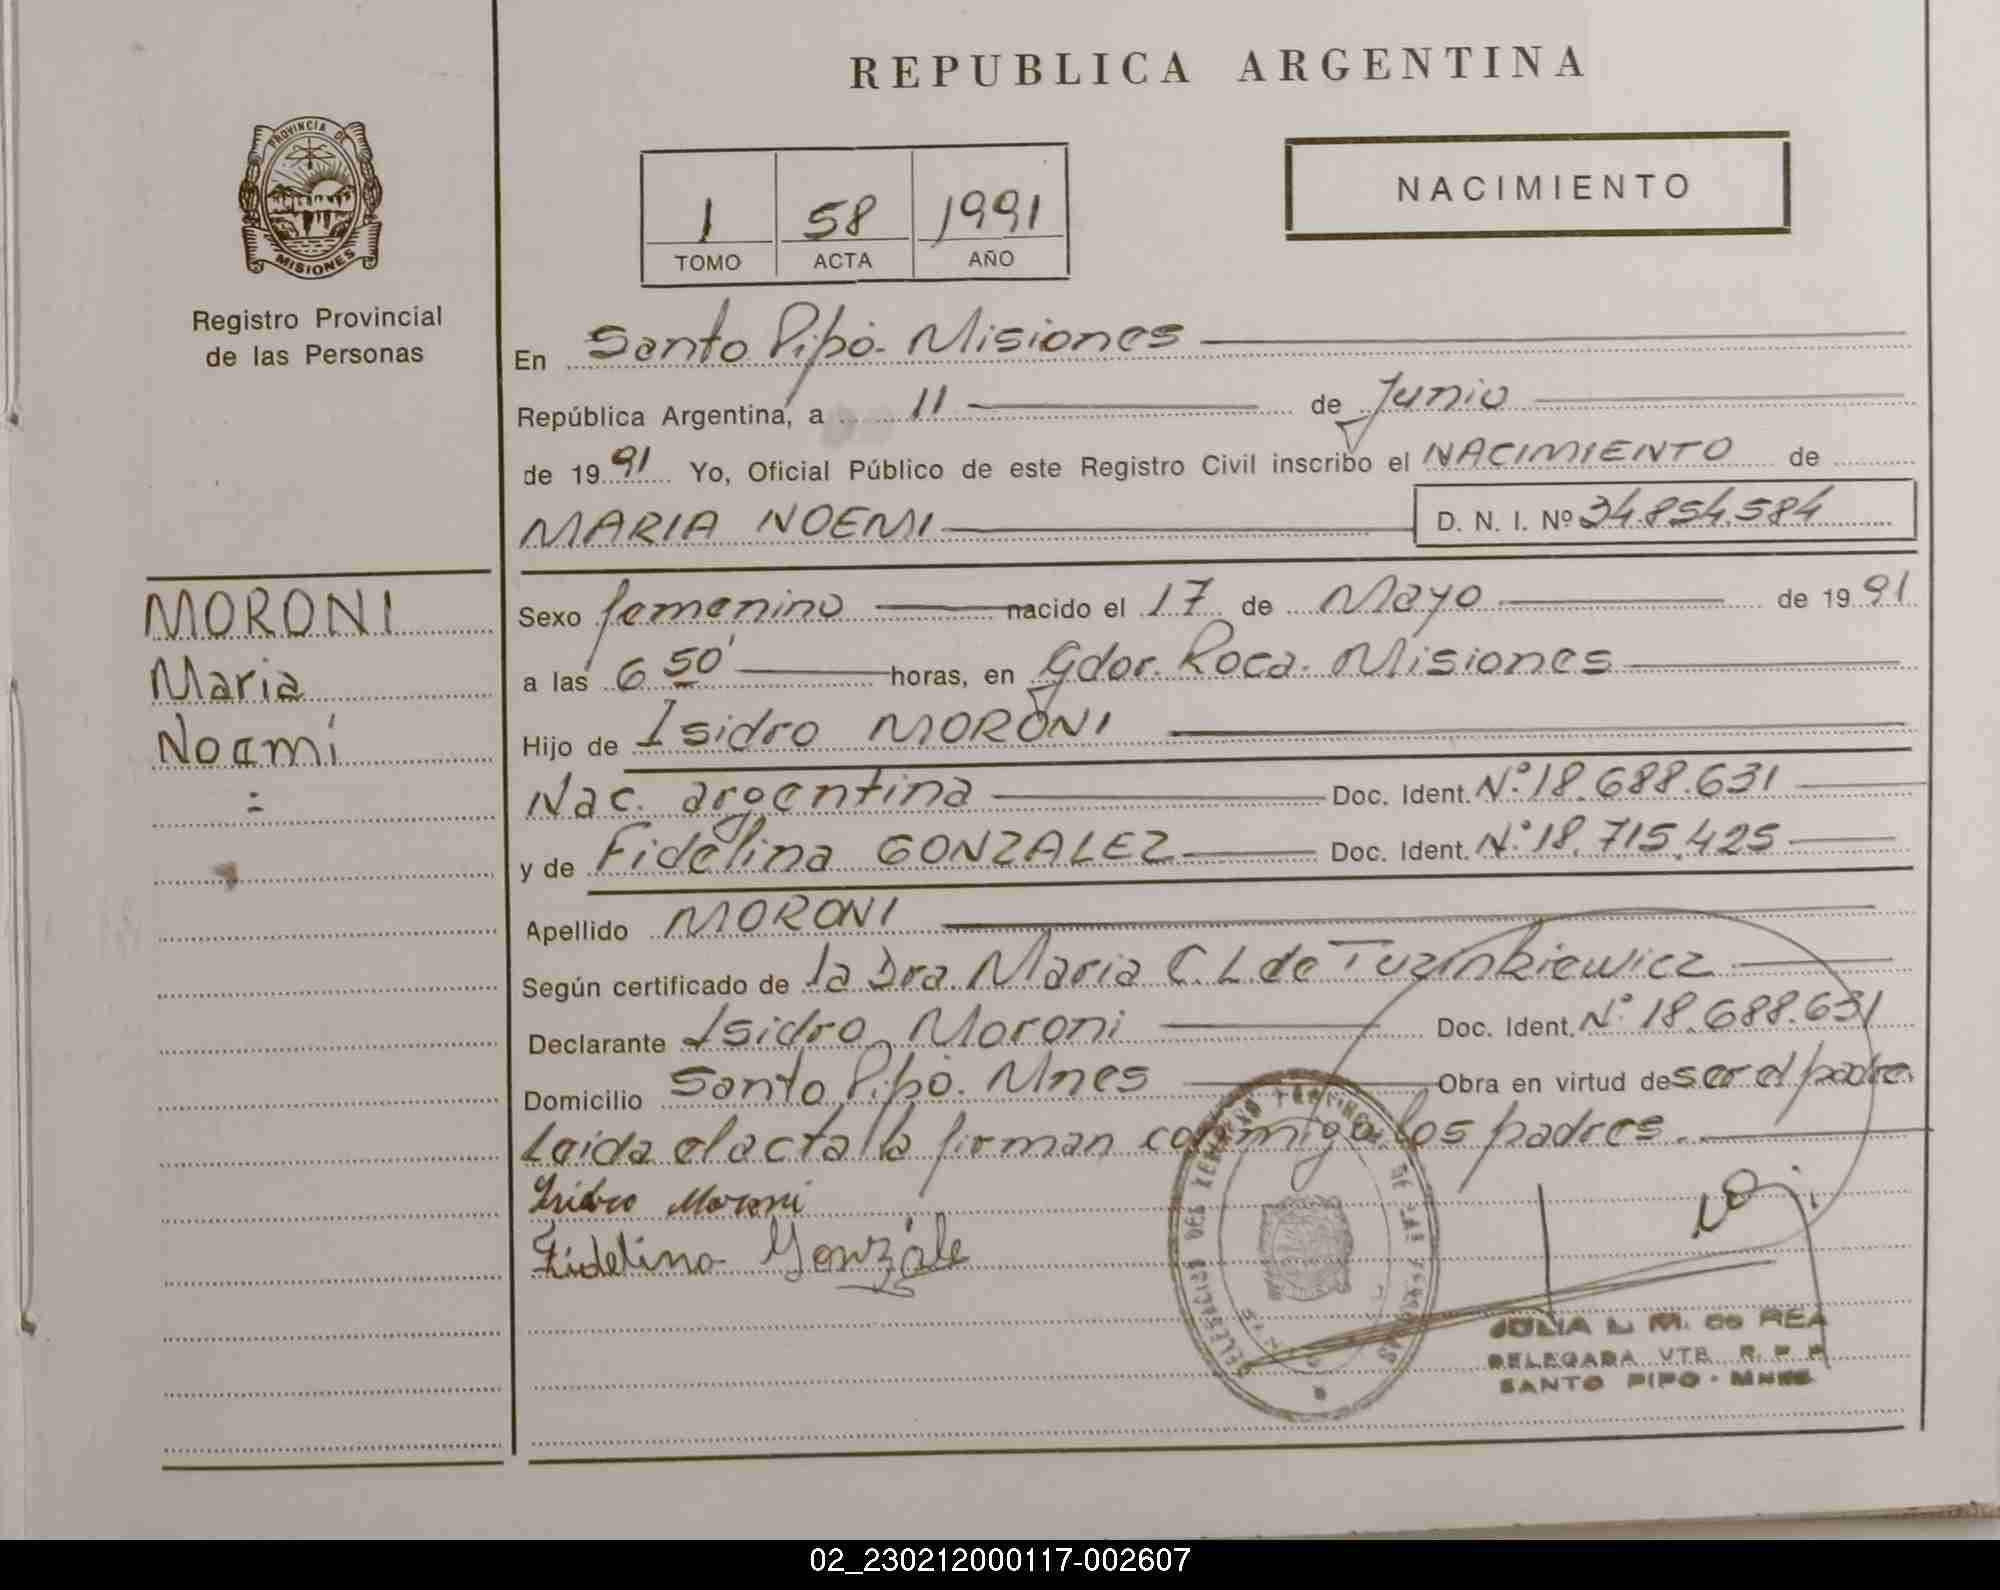 REPUBLICA ARGENTINA
PROVINCIA DE
MISIONES
Registro Provincial
de las Personas
1 58 1991
TOMO ACTA AÑO
NACIMIENTO
En Santo Pipó. Misiones
República Argentina, a 11 de Junio
de 1991 Yo, Oficial Público de este Registro Civil inscribo el NACIMIENTO de
MARIA NOEMI D. N. I. Nº 34.854.584
MORONI
Maria
Noemí
=
Sexo femenino nacido el 17 de Mayo de 1991
a las 6 50' horas, en Gdor. Roca. Misiones
Hijo de Isidro MORONI
Nac. argentina Doc. Ident. Nº 18.688.631
y de Fidelina GONZALEZ Doc. Ident. Nº 18.715.425
Apellido MORONI
Según certificado de la Dra. Maria C. L. de Tuzinkiewicz
Declarante Isidro Moroni Doc. Ident. Nº 18.688.631
Domicilio Santo Pipó. Mnes Obra en virtud de ser el padre.
Leida el acta la firman conmigo los padres.
Isidro Moroni
Fidelina Gonzále
JULIA L. M. de REA
DELEGADA VTB R. P. P.
SANTO PIPO - MNES
02_230212000117-002607